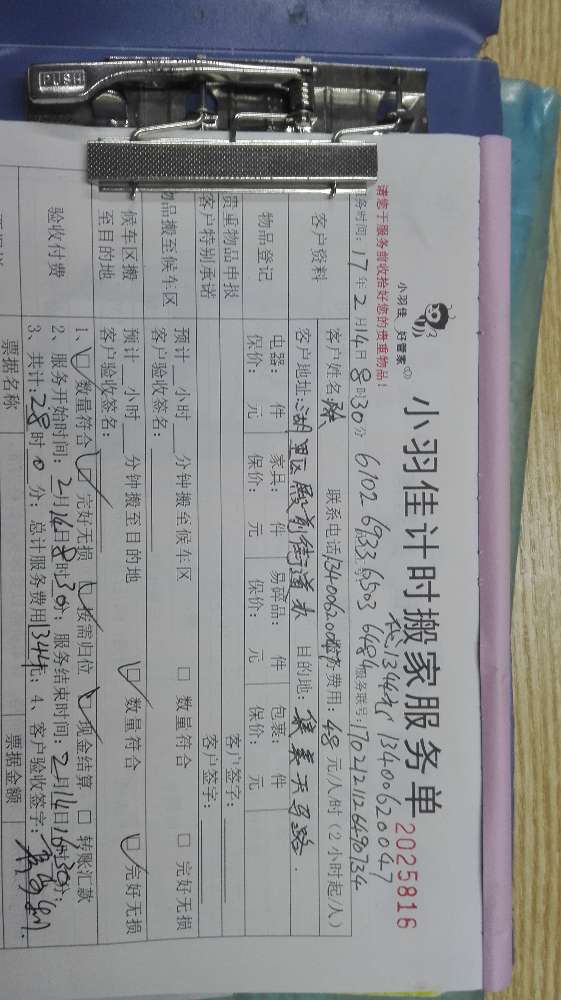 PUSH
小羽佳 好管家
小羽佳计时搬家服务单 2025816
代1344元 13400620047
请您于服务前收拾好您的贵重物品！
务时间：17年2月14日8时30分 6102 6933 6503 6484 服务账号：170212112649
客户资料
客户姓名 联系电话134006200 费用：48元/人/时（2小时起/人）
客户地址：湖里区殿前街道办 目的地：集美天马路.
物品登记
电器： 件 家具： 件 易碎品： 件 包裹： 件
保价： 元 保价： 元 保价： 元 保价： 元
贵重物品申报 客户签字：
客户特别承诺 客户签字：
物品搬至候车区
预计 小时 分钟搬至候车区 □ 数量符合 □ 完好无损
客户验收签名：
候车区搬至目的地
预计 小时 分钟搬至目的地 数量符合 完好无损
客户验收签名：
验收付费
1、 数量符合 完好无损 按需归位 现金结算 □ 转账汇款
2、服务开始时间：2月14日8时30分；服务结束时间：2月14日16时30分；
3、共计：28时0分；总计服务费用1344元；4、客户验收签字：
票据名称 票据金额